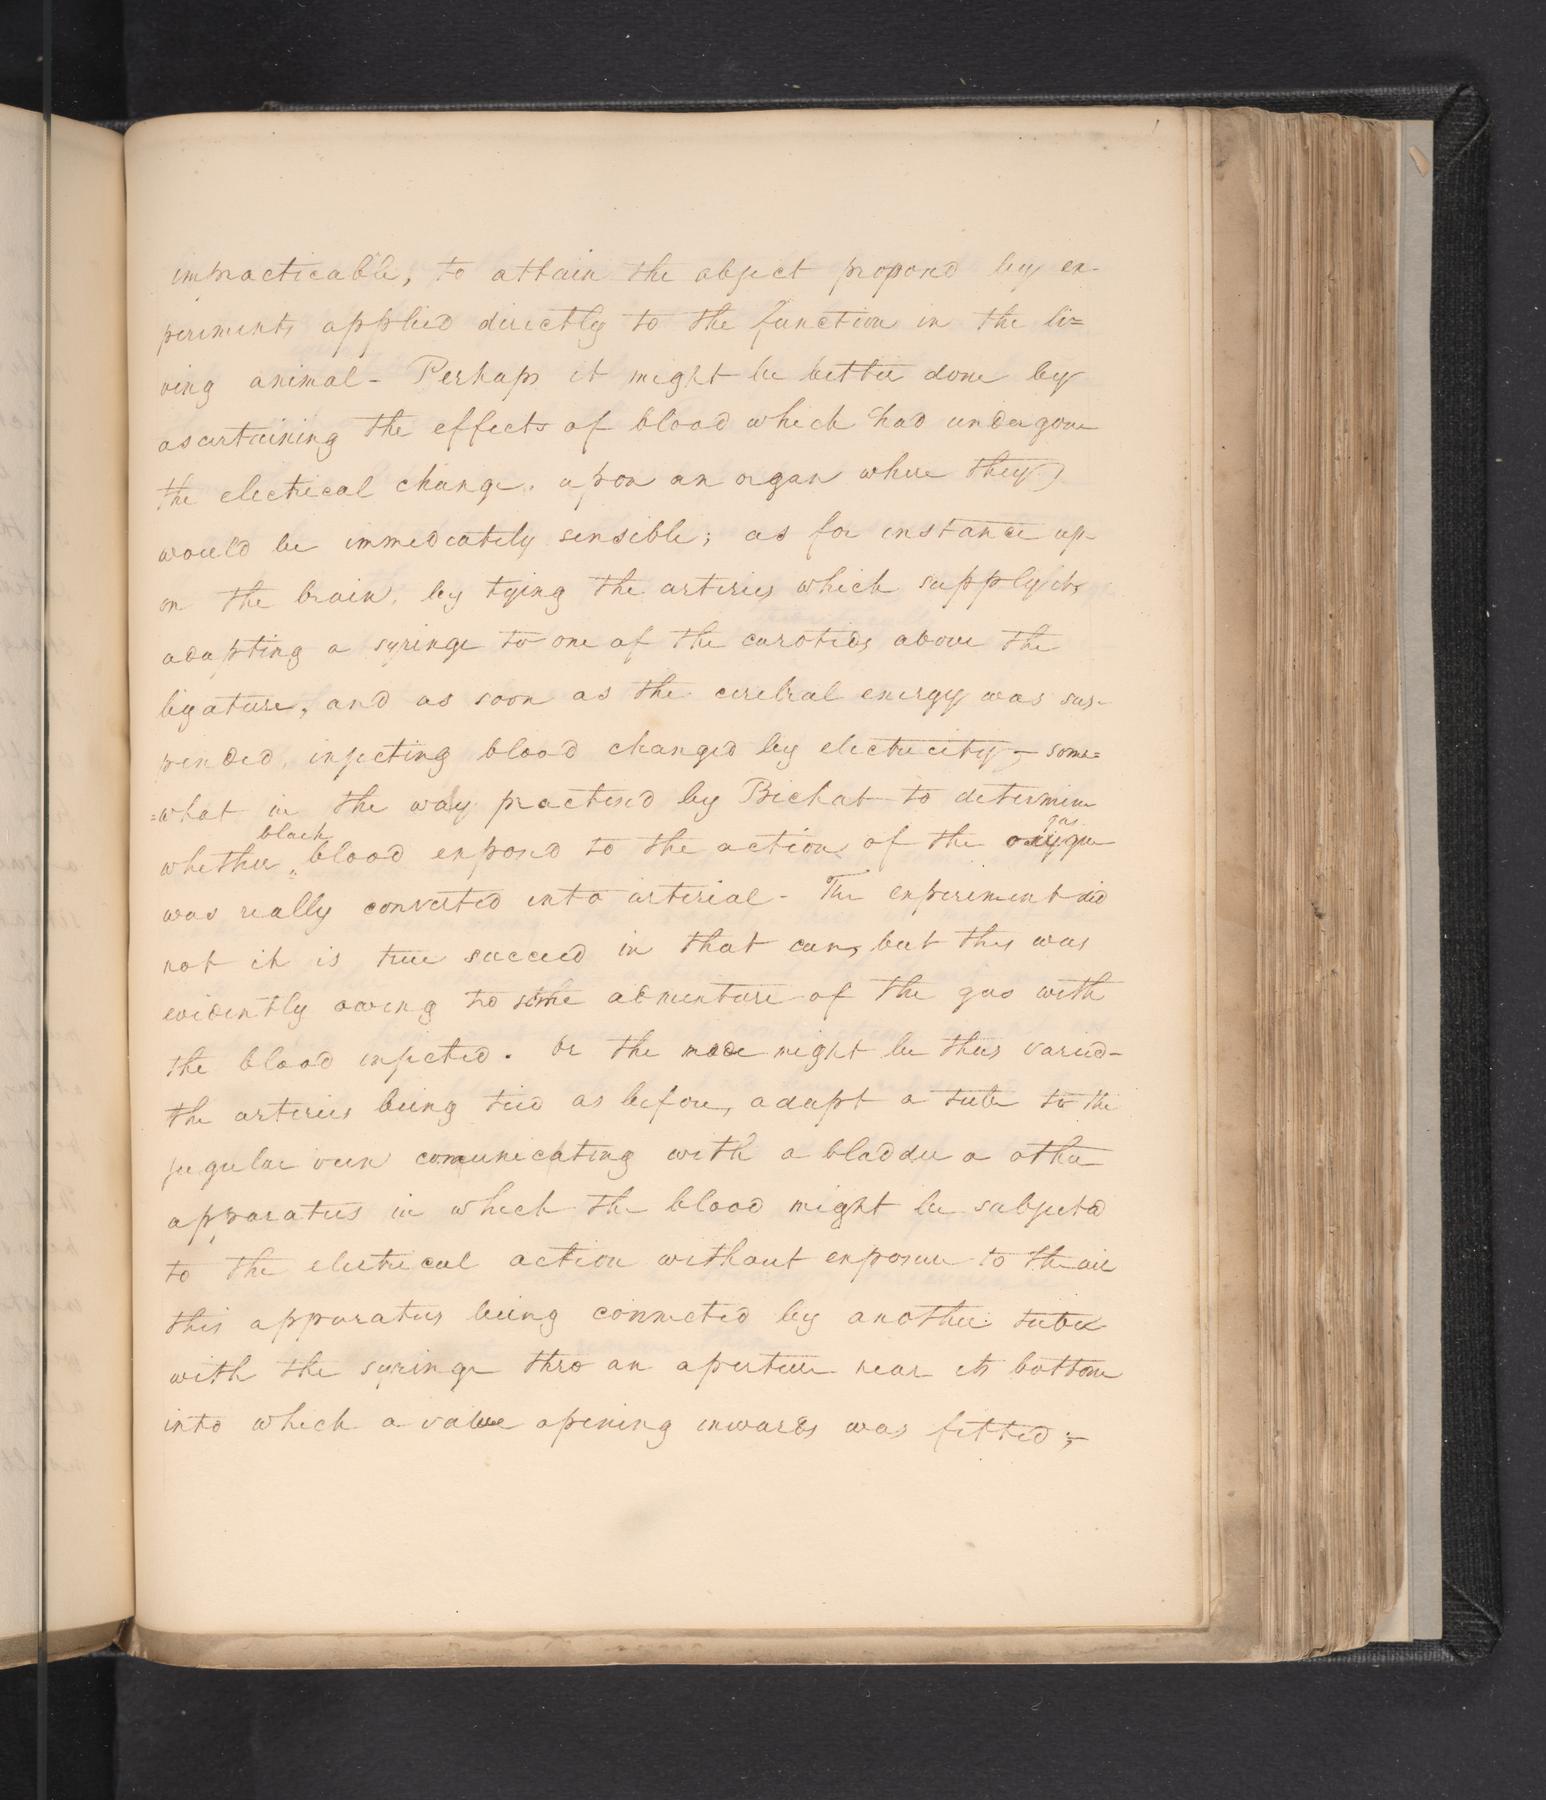 impracticable, to attain the object proposed by ex-
periments applied directly to the function in the li=
ving animal - Perhaps it might be better done by
ascertaining the effects of blood which had undergone
the electrical change. upon an organ where they
would be immediately sensible; as for instance up-
on the brain, by tying the arteries which supply it,
adapting a syringe to one of the carotids above the
ligature, and as soon as the cerebral energy was sus-
pended, injecting blood changed by electricity - some=
=what in the way practised by Bichat to determine
black gas
whether blood exposed to the action of the oxygen
was really converted into arterial - The experiment did
not it is true succeed in that case, but this was
evidently owing to some admixture of the gas with
the blood injected. Or the mode might be thus varied -
the arteries being tied as before, adapt a tube to the
jugular vein comunicating with a bladder or other
apparatus in which the blood might be subjected
to the electrical action without exposure to the air
this apparatus being connected by another tube
with the syringe thro an aperture near its bottom
into which a valve opening inwards was fitted; -